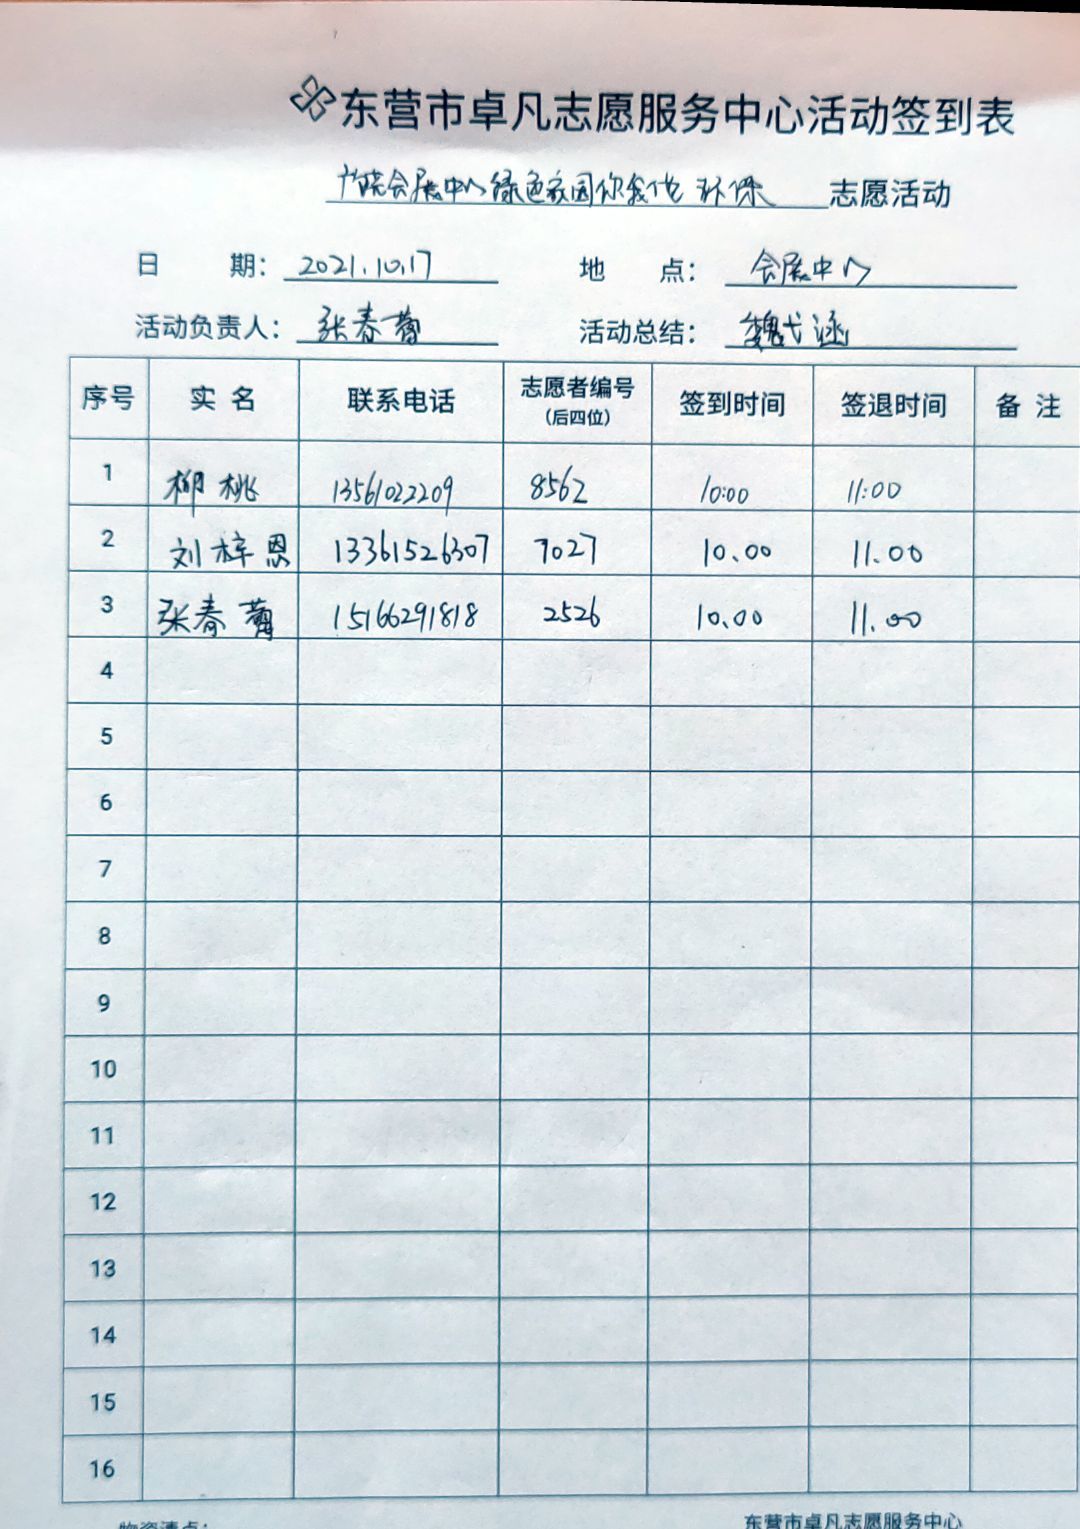 东营市卓凡志愿服务中心活动签到表
广饶会展中心绿色家园你我他 环保 志愿活动
日 期： 2021.10.17 地 点： 会展中心
活动负责人： 张春 活动总结： 魏弋涵
序号 实 名 联系电话 志愿者编号（后四位） 签到时间 签退时间 备 注
1 柳桃 13561022209 8562 10:00 11:00
2 刘梓恩 13361526307 7027 10.00 11.00
3 张春 15166291818 2526 10.00 11.00
4
5
6
7
8
9
10
11
12
13
14
15
16
物资清点： 东营市卓凡志愿服务中心